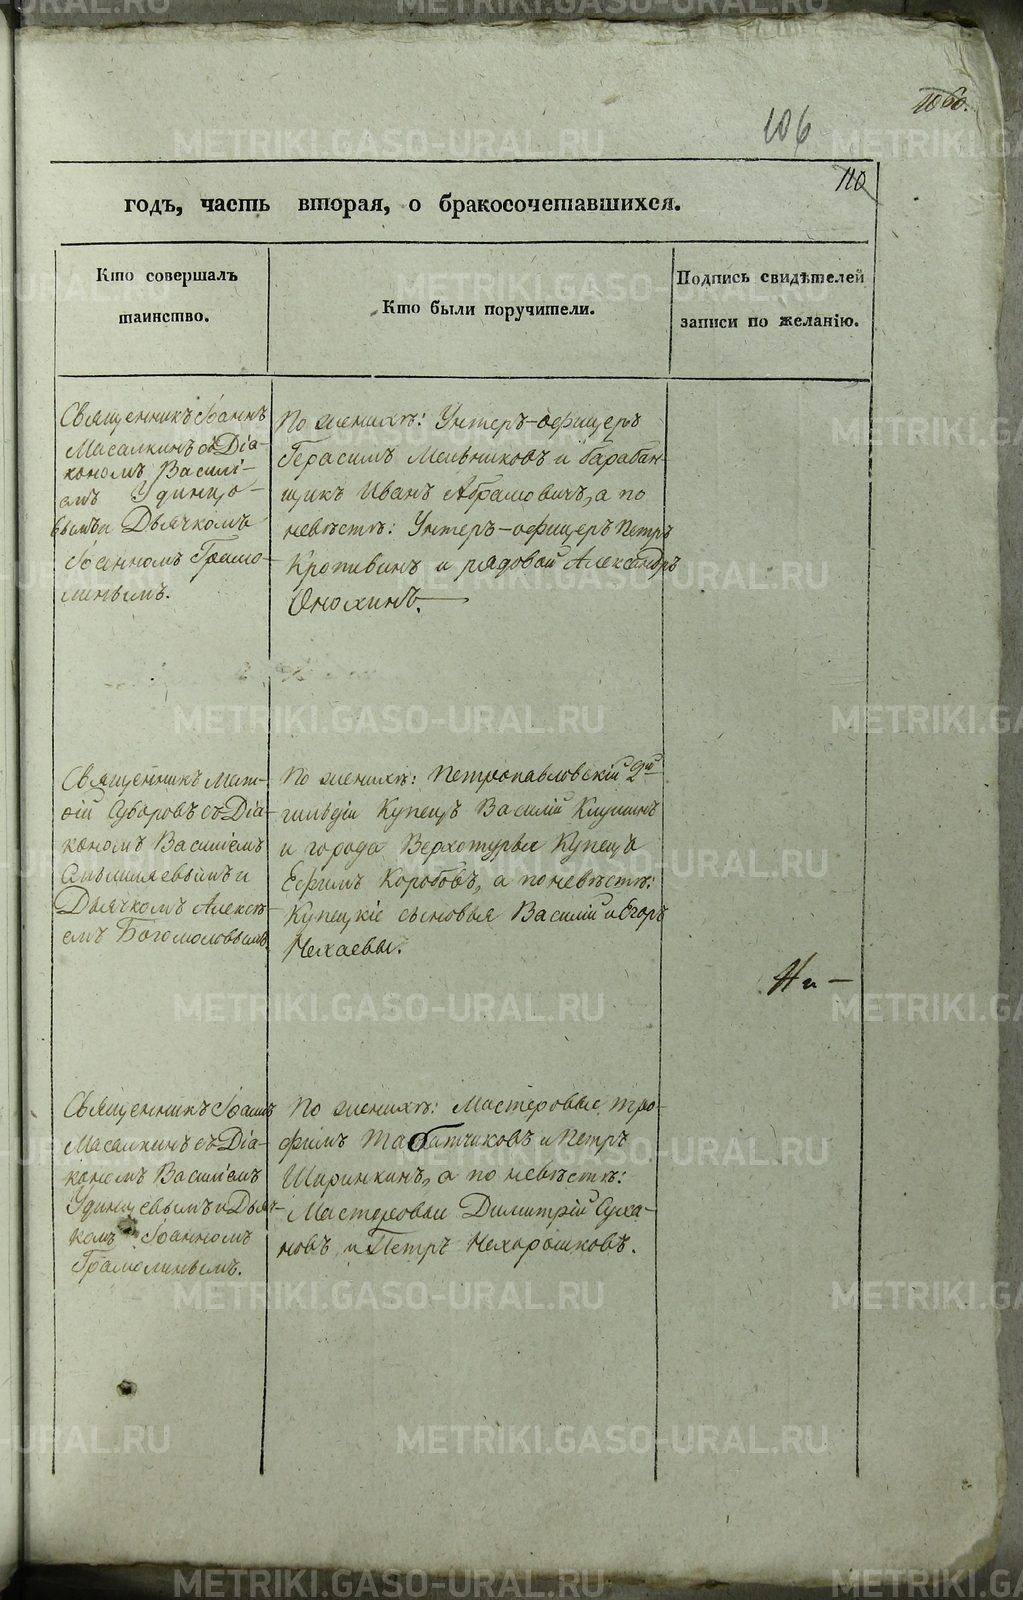 1060.
106
110
годъ, часть вторая, о бракосочетавшихся.
Кто совершалъ
таинство.
Кто были поручители.
Подпись свидѣтелей
записи по желанію.
Священникъ Іоаннъ
Масалкинъ съ Діа-
кономъ Василі-
емъ Удинцо-
вымъ и Дьячкомъ
Іоанномъ
По женихѣ: Унтеръ-офицеръ
Герасимъ Мельниковъ и барабан-
щикъ Иванъ Абрамовичъ, а по
невѣстѣ: Унтеръ-офицеръ Петръ
Кропивинъ и рядовой Александръ
Священникъ Мат-
ѳій Суворовъ съ Діа-
кономъ Василіемъ
и
Дьячкомъ Алексѣ-
емъ Богомоловымъ.
По женихѣ: Петропавловскій 2й
гильдіи Купецъ Василій
и города Верхотурья Купецъ
Ефимъ Коробовъ, а по невѣстѣ:
Купецкіе сыновья Василій и Егоръ
Нехаевы.
Священникъ Іоаннъ
Масалкинъ съ Діа-
кономъ Василіемъ
Удинцевымъ и Дьяч-
комъ Іоанномъ
По женихѣ: Мастеровые Тро-
фимъ Табатчиковъ и Петръ
Ширинкинъ, а по невѣстѣ:
Мастеровые Димитрій Суха-
новъ и Петръ Нехорошковъ.
METRIKI.GASO-URAL.RU